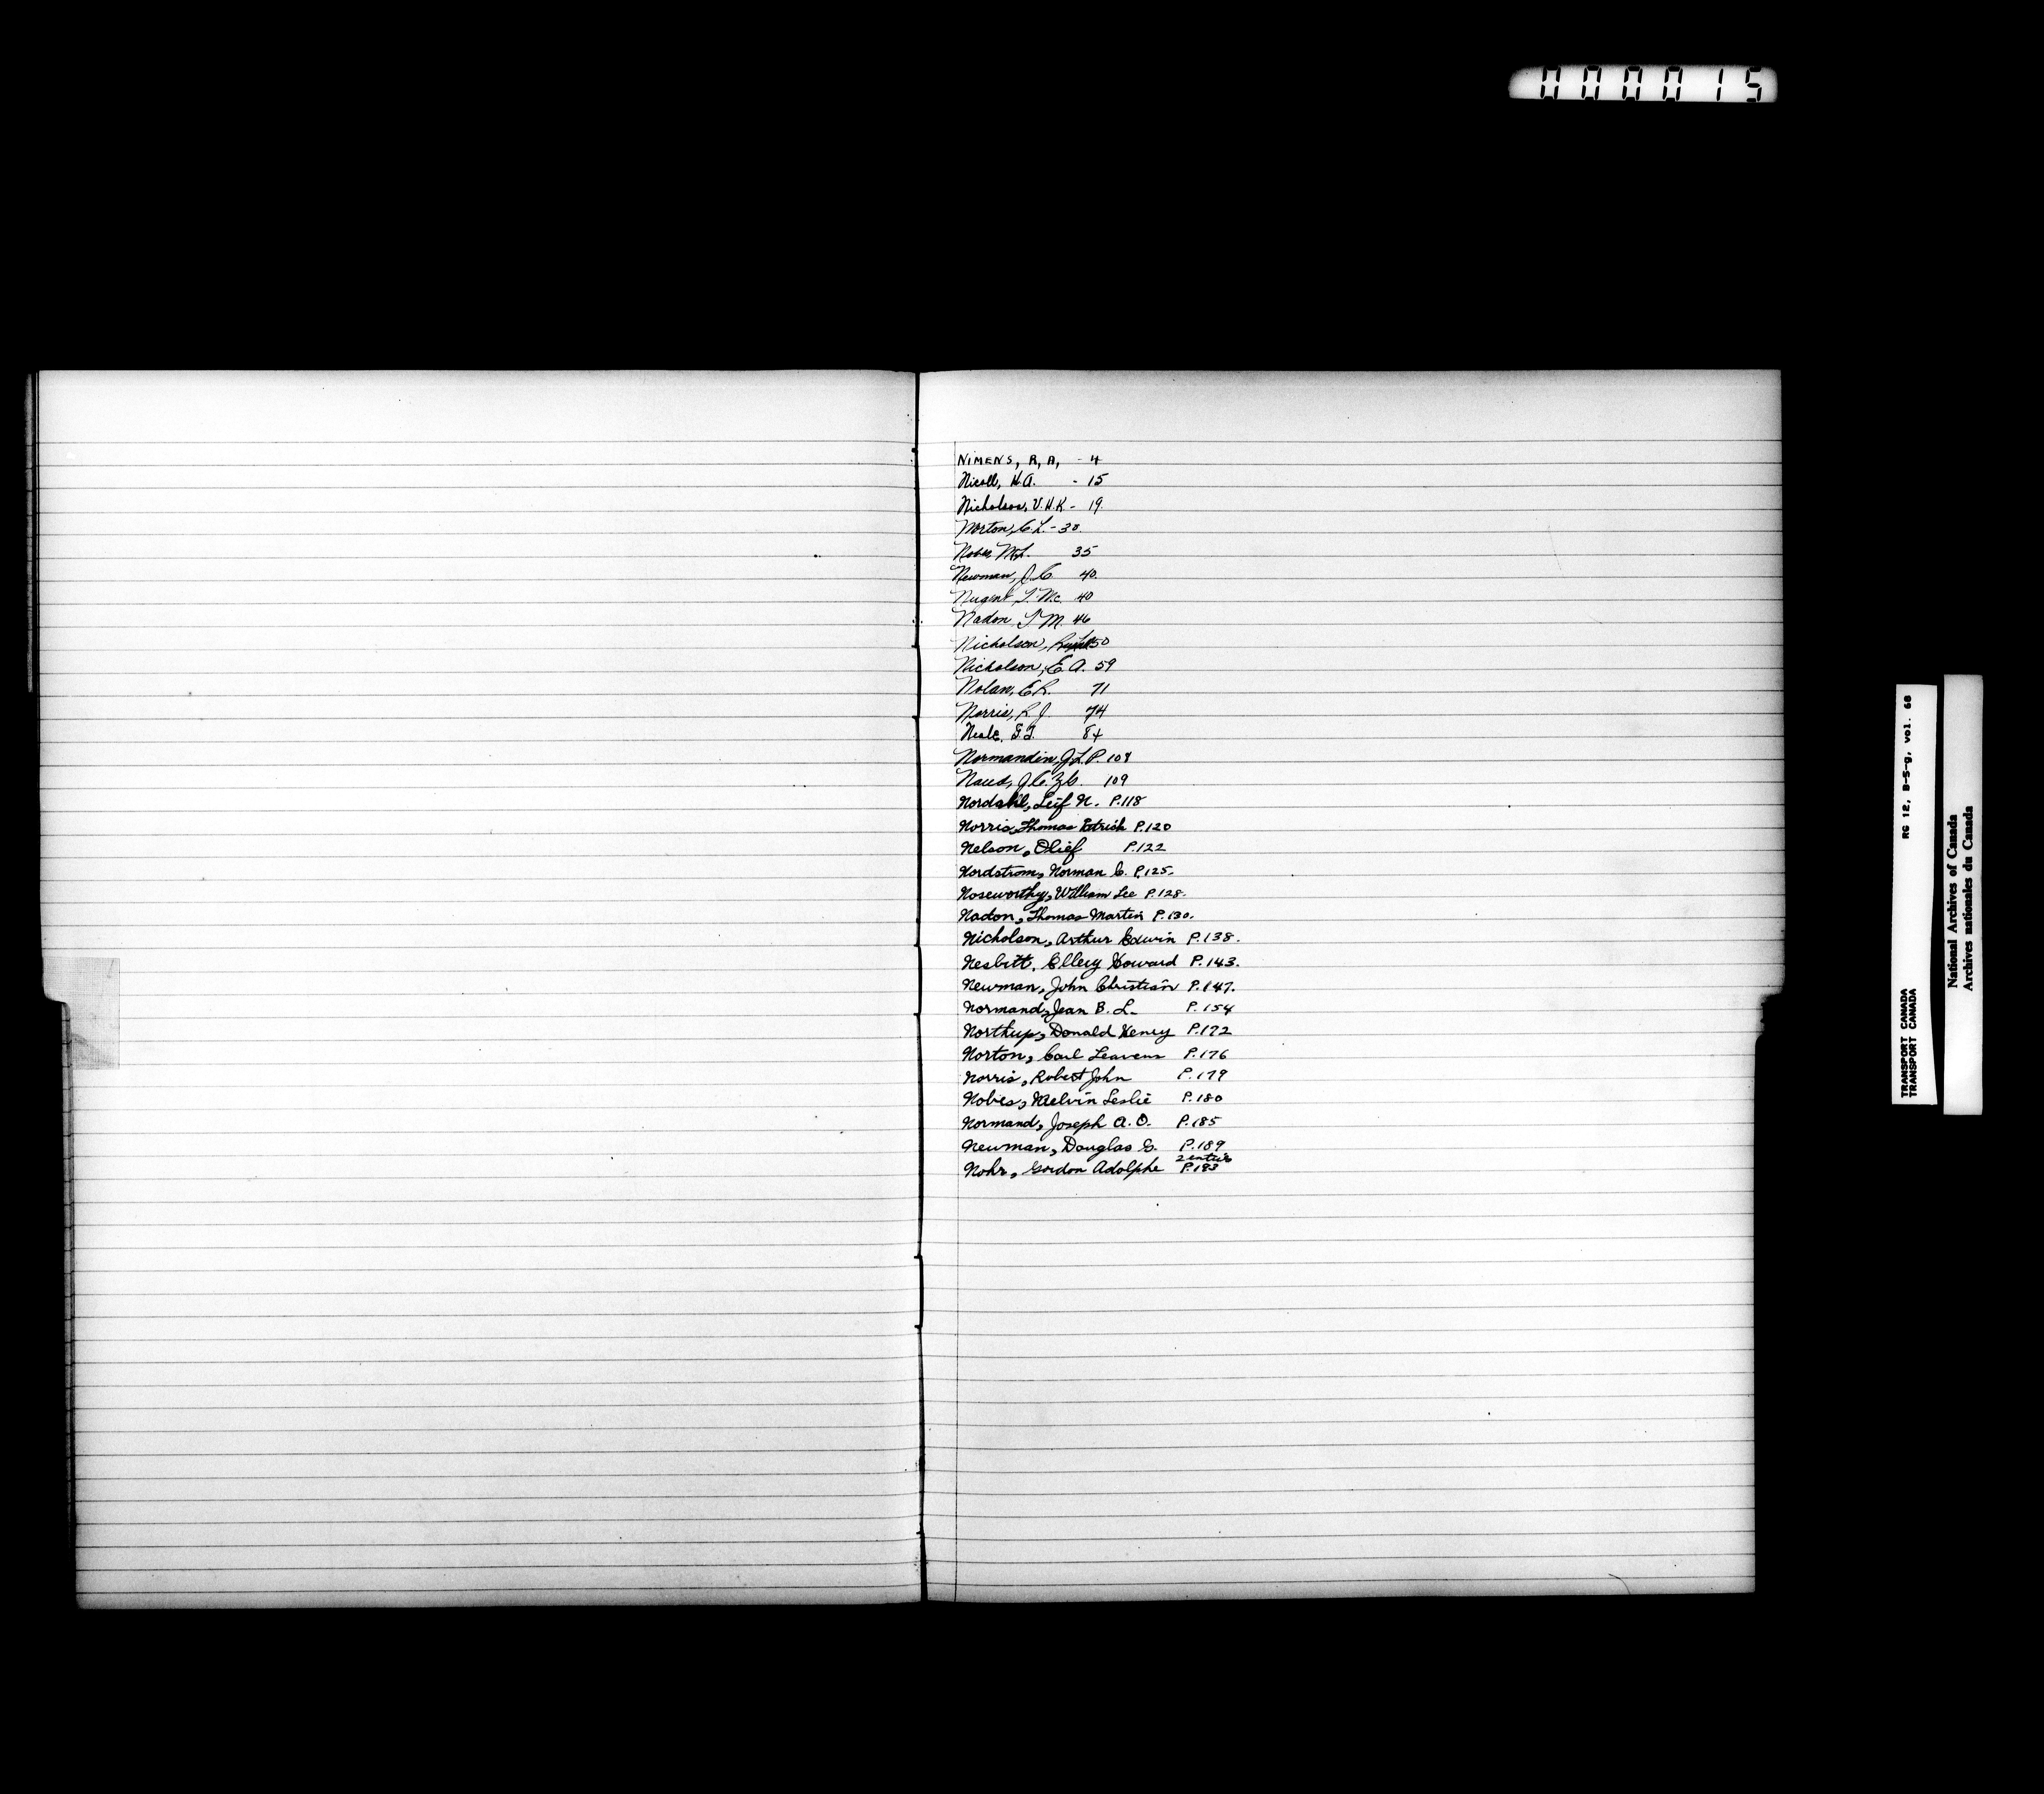 000015
NIMENS, R, A, - 4
Nicoll, H.A. - 15
Nicholson, V.H.K - 19.
Norton, C.L. - 30.
Nobes M.L. 35
Newman, J.C. 40.
Nugent, T. Mc. 40
Nadon, T.M. 46
Nicholson, 50
Nicholson, E.A. 59
Nolan, E.R. 71
Norris, R.J. 74
Neale, 84
Normandin, J.L.P. 108
Naud, J.C.Z.G. 109
Nordahl, Leif N. P.118
Norris, Thomas Patrick P.120
Nelson, Olief P.122
Nordstrom, Norman C. P.125.
Noseworthy, William Lee P.128.
Nadon, Thomas Martin P.130.
Nicholson, Arthur Edwin P.138.
Nesbitt, Ellery Howard P.143.
Newman, John Christian P.147.
Normand, Jean B. L. P.154
Northup, Donald Henry P.172
Norton, Carl Leavens P.176
Norris, Robert John P.179
Nobes, Melvin Leslie P.180
Normand, Joseph A.O. P.185
Newman, Douglas G. P.189
2 entries
Nohr, Gordon Adolphe P.183
TRANSPORT CANADA RG 12, B-5-g, vol. 68
TRANSPORT CANADA
National Archives of Canada
Archives nationales du Canada